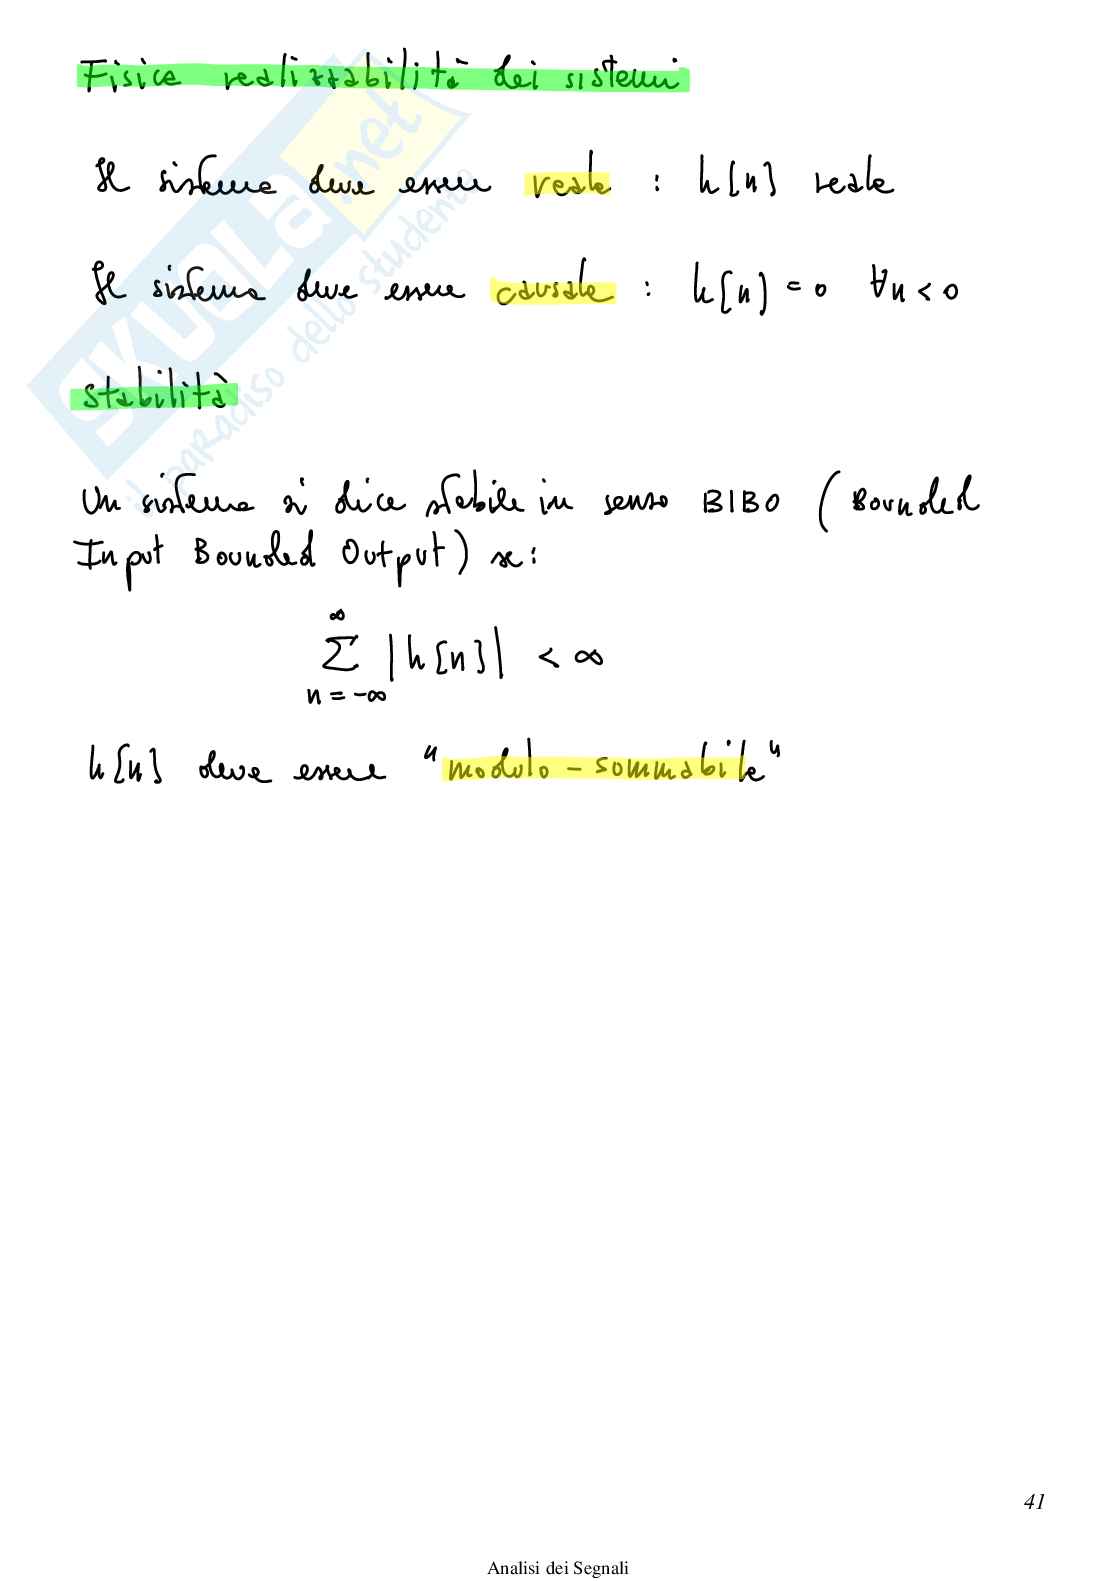 Fisica realizzabilità dei sistemi
Il sistema deve essere reale : h[n] reale
Il sistema deve essere causale : h[n] = 0 ∀n < 0
SKUOLA.net
il paradiso dello studente
Stabilità
Un sistema si dice stabile in senso BIBO (Bounded
Input Bounded Output) se:
∞
Σ |h[n]| < ∞
n = -∞
h[n] deve essere "modulo - sommabile"
41
Analisi dei Segnali